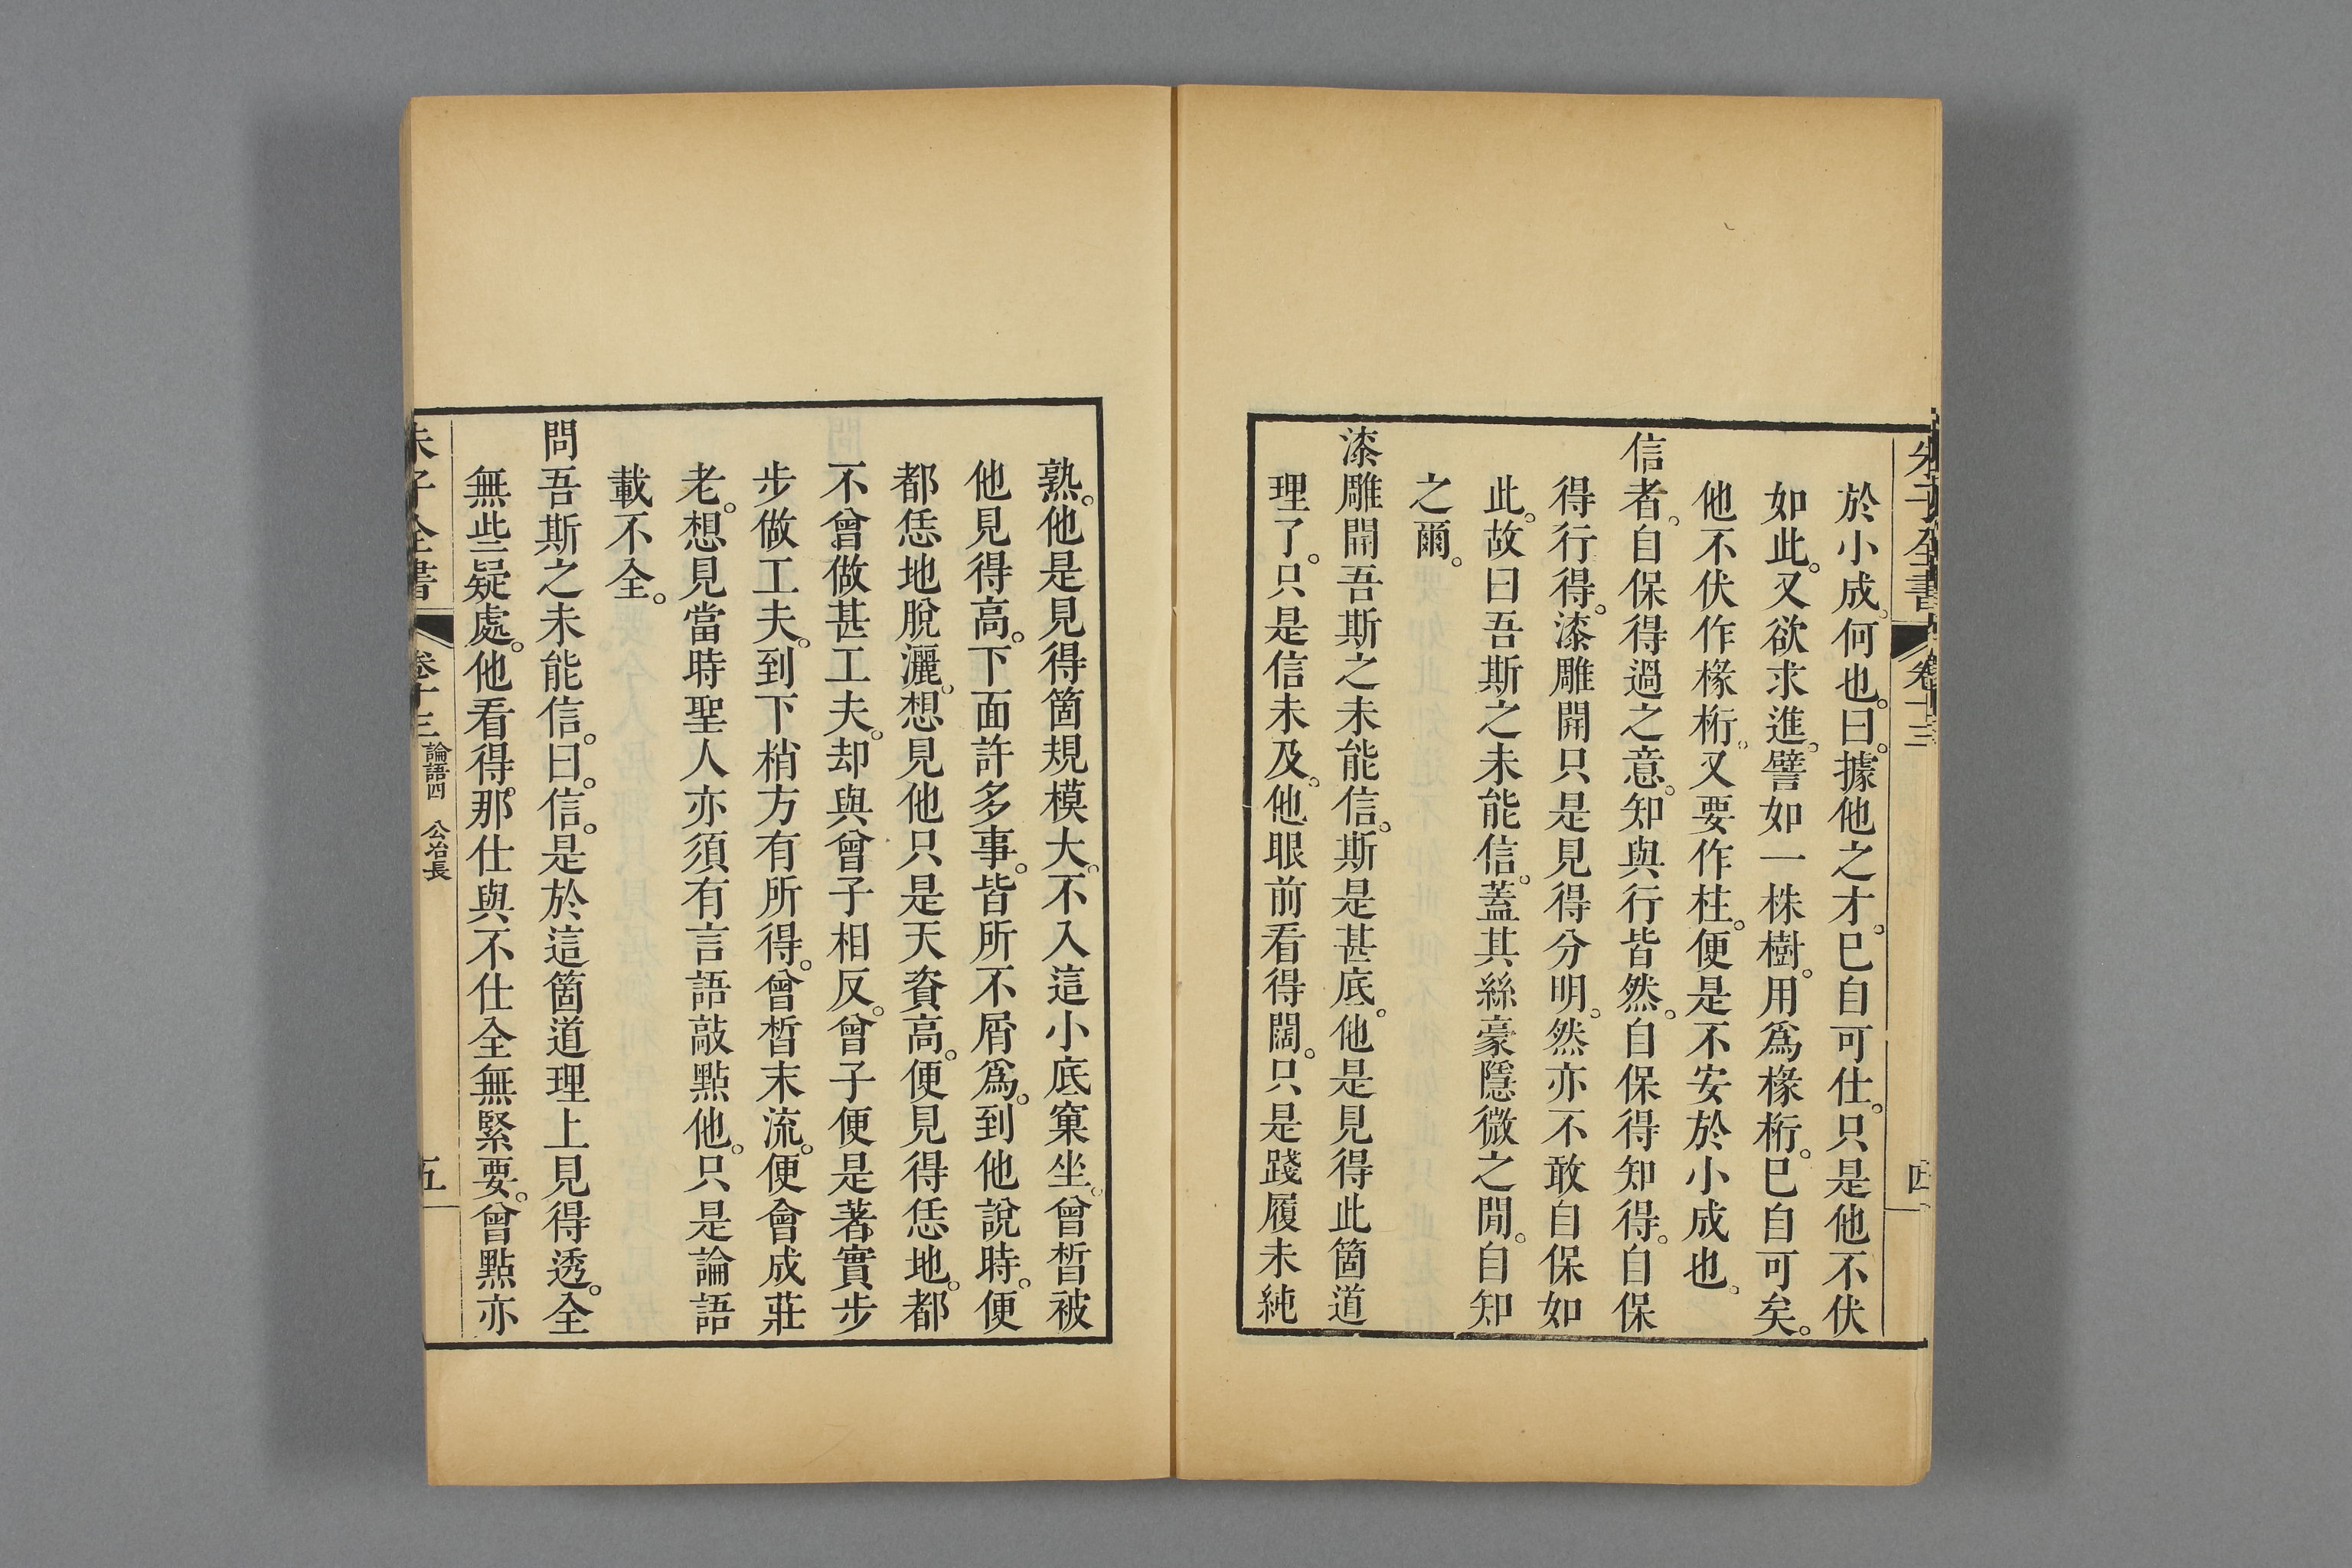 朱子全書 卷十三 四
於小成。何也。曰。據他之才。已自可仕。只是他不伏
如此。又欲求進。譬如一株樹。用爲椽桁。已自可矣。
他不伏作椽桁。又要作柱。便是不安於小成也。
信者。自保得過之意。知與行皆然。自保得知得。自保
得行得。漆雕開只是見得分明。然亦不敢自保如
此。故曰吾斯之未能信。蓋其絲豪隱微之閒。自知
之爾。
漆雕開吾斯之未能信。斯是甚底。他是見得此箇道
理了。只是信未及。他眼前看得闊。只是踐履未純
熟。他是見得箇規模大。不入這小底窠坐。曾皙被
他見得高。下面許多事。皆所不屑爲。到他說時。便
都恁地脫灑。想見他只是天資高。便見得恁地。都
不曾做甚工夫。却與曾子相反。曾子便是著實步
步做工夫。到下梢方有所得。曾皙末流。便會成莊
老。想見當時聖人亦須有言語敲點他。只是論語
載不全。
問吾斯之未能信。曰。信。是於這箇道理上見得透。全
無些疑處。他看得。那仕與不仕全無緊要。曾點亦
朱子全書 卷十三 論語四 公冶長 五